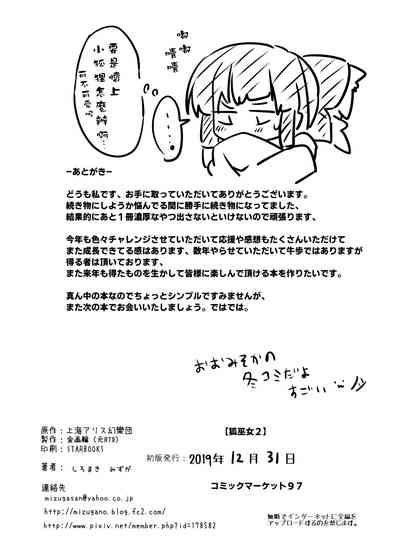 啊啊
嘖嘖
要是懷上
小狐狸怎麼辦啊…
可不可愛呢
…。
–あとがき–
どうも私です、お手に取っていただいてありがとうございます。
続き物にしようか悩んでる間に勝手に続き物になってました、
結果的にあと１冊濃厚なやつ出さないといけないので頑張ります、
今年も色々チャレンジさせていただいて応援や感想もたくさんいただけて
また成長できてる感はあります、数年やらせていただいて牛歩ではありますが
得る者は頂いております、
また来年も得たものを生かして皆様に楽しんで頂ける本を作りたいです。
真ん中の本なのでちょっとシンプルですみませんが、
また次の本でお会いいたしましょう。ではでは。
おおみそかの
冬コミだよ
すごい
原作：上海アリス幻樂団
製作：金画輪（元RTB）
印刷：STARBOOKS
著者： しろまき みずが
連絡先
mizugasan@yahoo.co.jp
http://mizugano.blog.fc2.com/
http://www.pixiv.net/member.php?id=178582
【狐巫女２】
初版発行： 2019年 12月 31日
コミックマーケット９７
無断でインターネットに全編を
アップロードするのを禁じます。